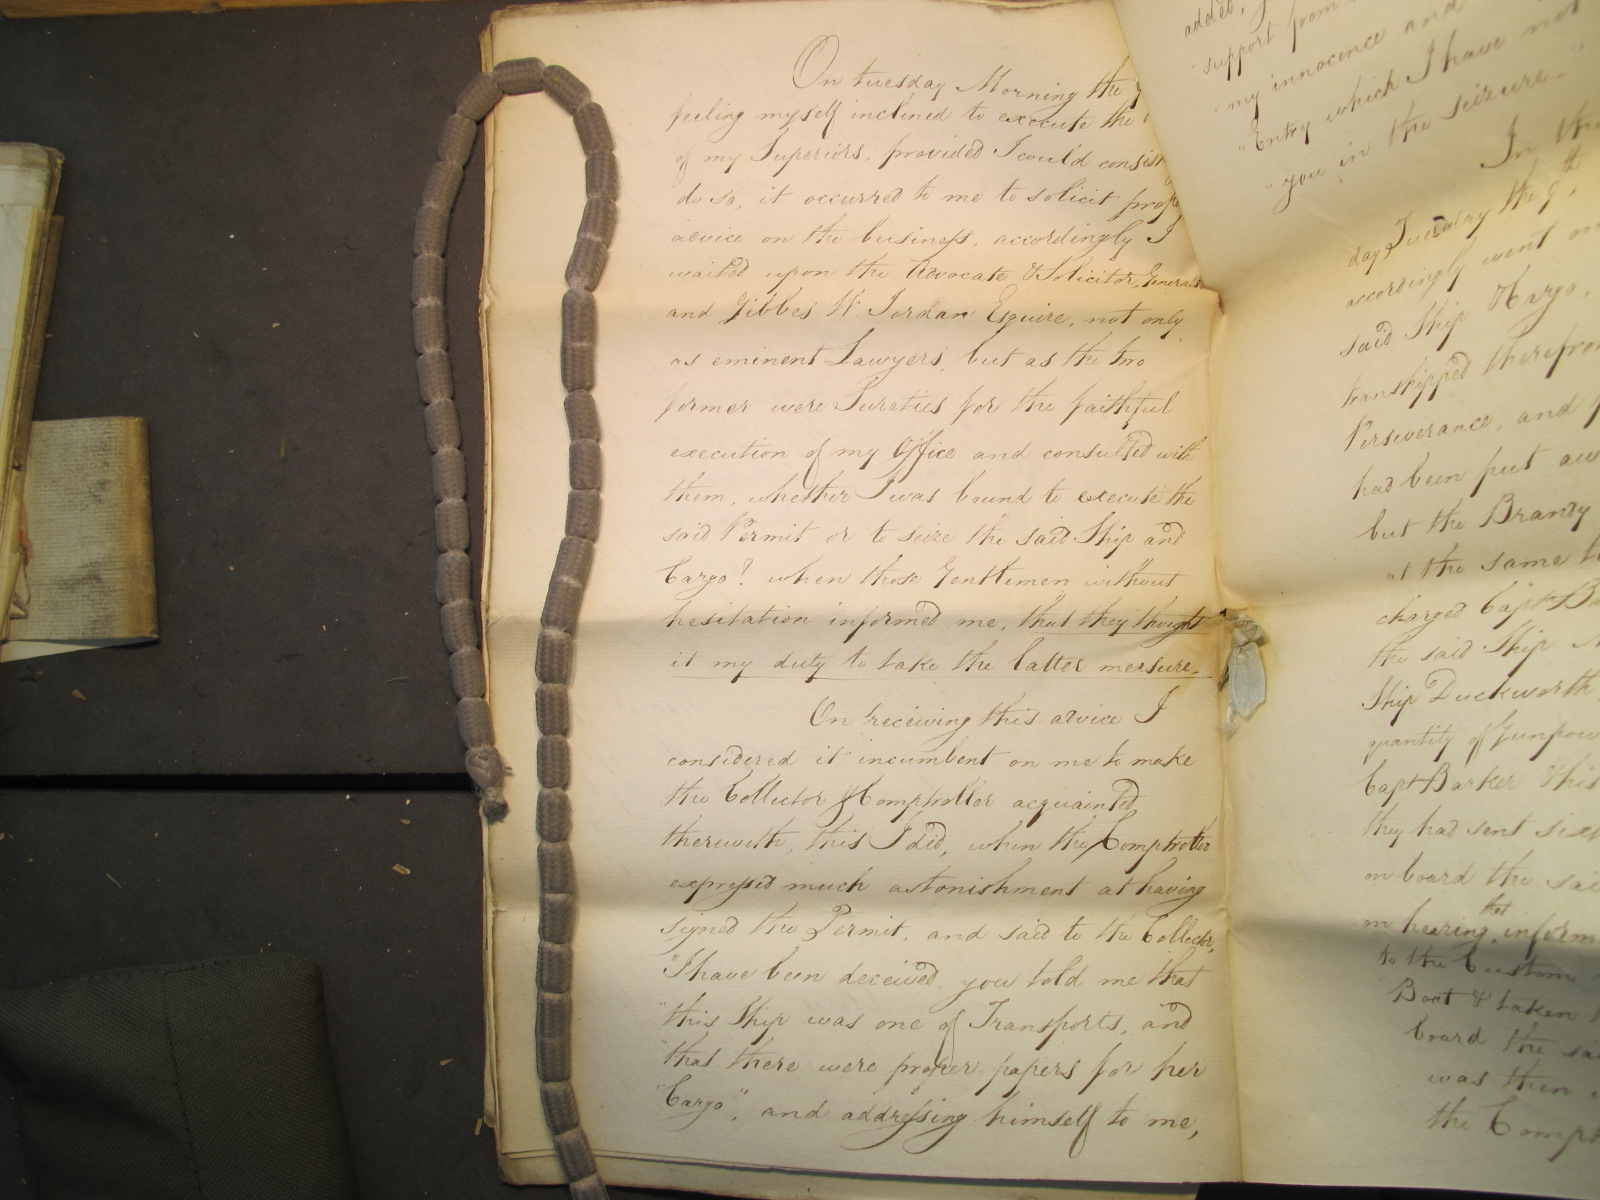 On tuesday Morning the
feeling myself inclined to execute the
of my Superiors, provided I could consist
do so, it occurred to me to solicit prop
advice on the business, accordingly I
waited upon the Advocate & Solicitor, Generals
and Gibbes W. Jordan Esquire, not only
as eminent Lawyers, but as the two
former were Sureties for the faithful
execution of my Office and consulted with
them, whether I was bound to execute the
said Permit or to seize the said Ship and
Cargo? when those Gentlemen without
hesitation informed me, that they thought
it my duty to take the latter measure.
On receiving this advice I
considered it incumbent on me to make
the Collector & Comptroller acquainted
therewith, this I did, when the Comptroller
expressed much astonishment at having
signed the Permit, and said to the Collector,
"I have been deceived, you told me that
"this Ship was one of Transports, and
"that there were proper papers for her
"Cargo", and addressing himself to me,
added,
"support from
"my innocence and
"Entry which I have not
"you in the seizure.
In the
day Tuesday the 9th
accordingly went on
said Ship Hugo,
transhipped therefro
Perseverance, and
had been put aw
but the Brandy
at the same t
charged Capt Ba
the said Ship
Ship Duckworth
quantity of Gunpow
Capt Barker this
they had sent six
on board the sai
on hearing that inform
to the Custom
Boat & taken
board the sai
was then
the Compt